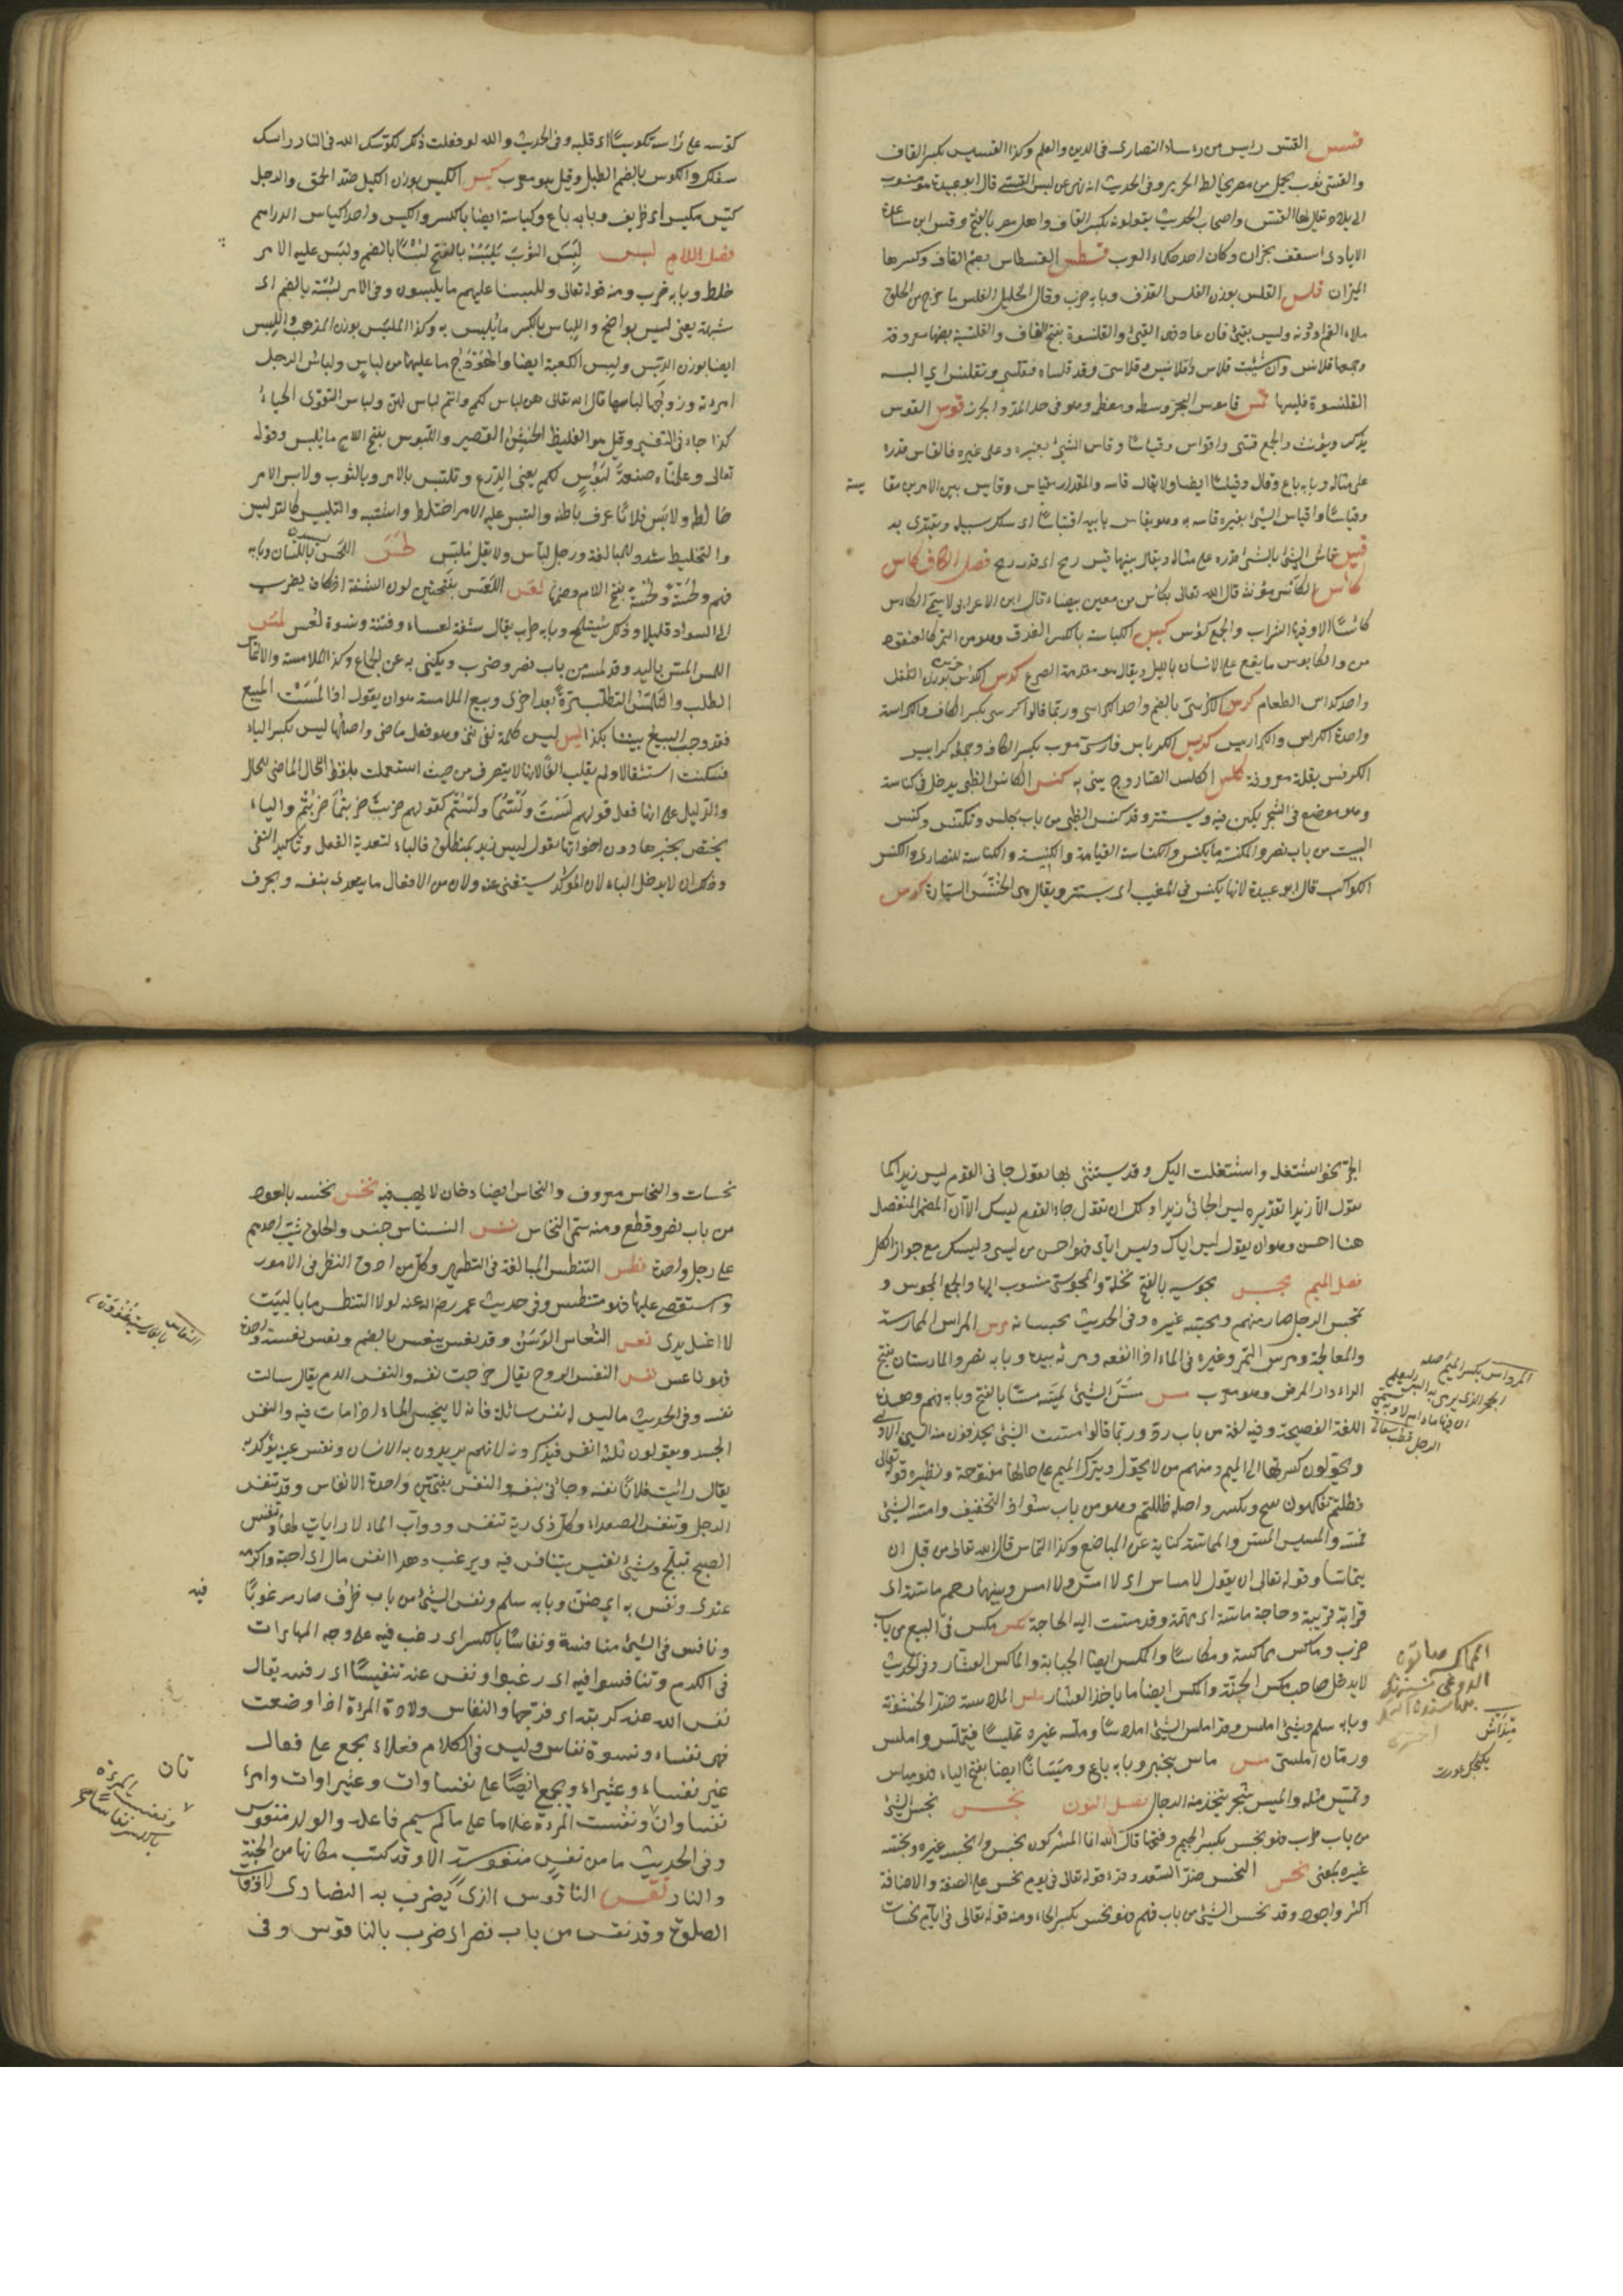 قسس القس رئيس من رؤساء النصارى فى الدين والعلم وكذا القسيس بكسر القاف
والقسى ثوب يحمل من مصر يخالط الحرير وفى الحديث انه نهى عن لبس القسى قال ابو عبيدة هو منسوب
الى بلاد يقال لها القس واصحاب الحديث يقولونه بكسر القاف واهل مصر بالفتح وقس ابن ساعدة
الايادى اسقف نجران وكان احد حكماء العرب قسطس القسطاس بضم القاف وكسرها
الميزان قلس القلس بوزن الفلس القذف وبابه ضرب وقال الخليل القلس ما خرج من الحلق
ملاء الفم او دونه وليس بقئ فان عاد فهو القئ والقلنسوة بفتح القاف والقلنسية بضمها معروفة
وجمعها قلانس وان شئت قلاس وقلانيس وقلاسى وقد قلساه فتقلسى وتقلنس اى البسه
القلنسوة فلبسها قمس قاموس البحر وسطه ومعظمه وهو فى حد المد والجزر قوس القوس
يذكر ويؤنث والجمع قسى واقواس وقياس وقاس الشئ بغيره وعلى غيره فالقاس قدره
على مثاله وبابه باع وقال وقياسا ايضا ولا يقال قاسه والمقدار مقياس وقايس بين الامرين مقا يسة
وقياسا واقتاس الشئ بغيره قاسه به وهو يقتاس بابيه اقتياسا اى سلك سبيله ويقتدى به
قيس قاس الشئ بالشئ قدره على مثاله ويقال بينهما قيس رمح اى قدر رمح فصل الكاف كاس
كأس الكأس مؤنثة قال الله تعالى بكأس من معين بيضاء قال ابن الاعرابى لا يسمى الكاس
كاسا الا وفيها الشراب والجمع كؤس كبس الكباسة بالكسر العذق وهو من التمر كالعنقود
من والكابوس ما يقع على الانسان بالليل ويقال هو مقدمة الصرع كدس الكدس بوزن القفل
واحد كداس الطعام كرس الكرسى بالضم واحد الكراسى وربما قالوا كرسى بكسر الكاف والكراسة
واحدة الكراس والكراريس كربس الكرباس فارسى معرب بكسر الكاف وجمعه كرابيس
الكرفس بقلة معروفة كلس الكلس الصاروج يبنى به كنس الكانس الظبى يدخل فى كناسه
وهو موضع فى الشجر يكتن فيه ويستتر وقد كنس الظبى من باب جلس وتكنس وكنس
البيت من باب نصر والمكنسة ما يكنس والكناسة القمامة والكنيسة والكناسة للنصارى والكنس
الكواكب قال ابو عبيدة لانها تكنس فى المغيب اى تستتر ويقال هى الخنس السيارة كوس
كوسه على رأسه تكويسا اى قلبه وفى الحديث والله لو فعلت ذلك لكوسك الله فى النار راسك
سفلك والكوس بالضم الطبل وقيل هو معرب كيس الكيس بوزن الكيل ضد الحمق والرجل
كيس مكيس اى ظريف وبابه باع وكياسة ايضا بالكسر والكيس واحد اكياس الدراهم
فصل اللام لبس لبس الثوب يلبسه بالفتح لبسا بالضم ولبس عليه الامر
خلط وبابه ضرب ومنه قوله تعالى وللبسنا عليهم ما يلبسون وفى الامر لبسة بالضم اى
شبهة يعنى ليس بواضح واللباس بالكسر ما يلبس به وكذا الملبس بوزن المذهب واللبس
ايضا بوزن الدبس ولبس الكعبة ايضا والهودج ما عليهما من لباس ولباس الرجل
امرءته وزوجها لباسها قال الله تعالى هن لباس لكم وانتم لباس لهن ولباس التقوى الحياء
كذا جاء فى التفسير وقيل هو الغليظ الخشن القصير واللبوس بفتح اللام ما يلبس وقوله
تعالى وعلمناه صنعة لبوس لكم يعنى الدرع وتلبس بالامر وبالثوب ولابس الامر
خالطه ولابس فلانا عرف باطنه والتبس عليه الامر اختلط واشتبه والتلبيس كالتدليس
والتخليط شدد للمبالغة ورجل لباس ولا يقل ملبس لحس اللحس باللسان وبابه
فهم ولحسة ولحسة بفتح اللام وضمها لعس اللعس بفتحتين لون الشفة اذا كان يضرب
الى السواد قليلا وذلك يستملح وبابه طرب يقال شفة لعساء وفتية ونسوة لعس لمس
اللمس المس باليد وقد لمسه من باب نصر وضرب ويكنى به عن الجماع وكذا الملامسة والالتماس
الطلب والتلمس التطلب مرة بعد اخرى وبيع الملامسة هو ان يقول اذا لمست المبيع
فقد وجب البيع بيننا بكذا ليس ليس كلمة نفى وهو فعل ماض واصلها ليس بكسر الياء
فسكنت استثقالا ولم تقلب الفا لانها لا تتصرف من حيث استعملت بلفظ الماضى للحال
والدليل على انها فعل قولهم لست ولستما ولستم كقولهم ضربت ضربتما ضربتم والباء
يختص بخبرها دون اخواتها تقول ليس زيد بمنطلق فالباء لتعدية الفعل وتاكيد النفى
وذلك ان لا يدخل الباء لان المؤكد يستغنى عنه ولان من الافعال ما يتعدى بنفسه وبحرف
الجر نحو اشتغلك واشتغلت اليك وقد يستثنى بها تقول جانى القوم ليس زيدا كما
تقول الا زيدا تقديره ليس الجائى زيدا ولك ان تقول جاء القوم ليسك الا ان المضمر المنفصل
هنا احسن وهو ان يقول ليس اياك وليس اياى فهو احسن من ليسى وليسك مع جواز الكل
فصل الميم مجس مجوسية بالفتح نحلة والمجوسى منسوب اليها والجمع المجوس و
تمجس الرجل صار منهم ومجسه غيره وفى الحديث يمجسانه مرس المراس الممارسة
والمعالجة ومرس التمر وغيره فى الماء اذا انقعه ومرثه بيده وبابه نصر والمارستان بفتح
الراء دار المرض وهو معرب مسس مس الشئ يمسه مسا بالفتح وبابه فهم وهذه
اللغة الفصيحة وفيه لغة من باب رد وربما قالوا مست الشئ يحذفون منه السين الاولى
ويحولون كسرتها الى الميم ومنهم من لا يحول ويترك الميم على حالها مفتوحة ونظيره قوله تعالى
فظلتم تفكهون بفتح وبكسر واصله ظللتم وهو من باب شواذ التخفيف وامسه الشئ
فمسه والمسيس المس والمماسة كناية عن المباضع وكذا التماس قال الله تعالى من قبل ان
يتماسا وقوله تعالى ان يقول لا مساس اى لا امس ولا امس وبينهما رحم ماسة اى
قرابة قريبة وحاجة ماسة اى مهمة وقد مست اليه الحاجة مكس مكس فى البيع من باب
ضرب وماكس مماكسة ومكاسا والمكس ايضا الجباية والماكس العشار وفى الحديث
لا يدخل صاحب مكس الجنة والمكس ايضا ما ياخذ العشار ملس الملاسة ضد الخشونة
وبابه سلم وشئ املس وقد املس الشئ املاسا وملسه غيره تمليسا فتملس واملس
ورمان امليسى ميس ماس تبختر وبابه باع وميسانا ايضا بفتح الياء فهو مياس
وتميس مثله والميس شجر يتخذ منه الرحال فصل النون نجس نجس الشئ
من باب طرب فهو نجس بكسر الجيم وفتحها قال الله انما المشركون نجس وانجسه غيره ونجسه
غيره بمعنى نحس النحس ضد السعد وقرء قوله تعالى فى يوم نحس على الصفة والاضافة
اكثر واجود وقد نحس الشئ من باب فهم فهو نحس بكسر الحاء ومنه قوله تعالى فى ايام نحسات
المرداس بكسر الميم اصله
نحسات والنحاس معروف والنحاس ايضا دخان لا لهب فيه نخس نخسه بالعود
من باب نصر وقطع ومنه سمى النخاس نسس النسناس جنس والخلق يثب احدهم
على رجل واحدة نطس التنطس المبالغة فى التطهر وكل من ادق النظر فى الامور
واستقصى عليها فهو متنطس وفى حديث عمر رضى الله عنه لولا التنطس ما باليت
لا اغسل يدى نعس النعاس الوسن وقد نعس ينعس بالضم ونعس نعسة واحدة
فهو ناعس نفس النفس الروح يقال خرجت نفسه والنفس الدم يقال سالت
نفسه وفى الحديث ما ليس له نفس سائلة فانه لا ينجس الماء اذا مات فيه والنفس
الجسد ويقولون ثلثة انفس فيذكرونه لانهم يريدون به الانسان ونفس عينه يؤكد به
يقال رايت فلانا نفسه وجانى بنفسه والنفس بفتحتين واحدة الانفاس وقد تنفس
الرجل وتنفس الصعداء وكل ذى رية تنفس ودواب الماء لا رايات لها وتنفس
الصبح تبلج وشئ نفيس يتنافس فيه ويرغب وهذا انفس مال اى احبه واكرمه
عندى ونفس به اى ضن وبابه سلم ونفس الشئ من باب ظرف صار مرغوبا فيه
ونافس فى الشئ منافسة ونفاسا بالكسر اى رغب فيه على وجه المباراة
فى الكرم وتنافسوا فيه اى رغبوا ونفس عنه تنفيسا اى رفه يقال
نفس الله عنه كربته اى فرجها والنفاس ولادة المرءة اذا وضعت
فهى نفساء ونسوة نفاس وليس فى الكلام فعلاء يجمع على فعال
غير نفساء وعشراء ويجمع ايضا على نفساوات وعشراوات وامرء تان
نفساوان ونفست المرءة غلاما على ما لم يسم فاعله والولد منفوس
وفى الحديث ما من نفس منفوسة الا وقد كتب مكانها من الجنة
والنار نقس الناقوس الذى يضرب به النصارى لاوقات
الصلوة وقد نقس من باب نصر اى ضرب بالناقوس وفى